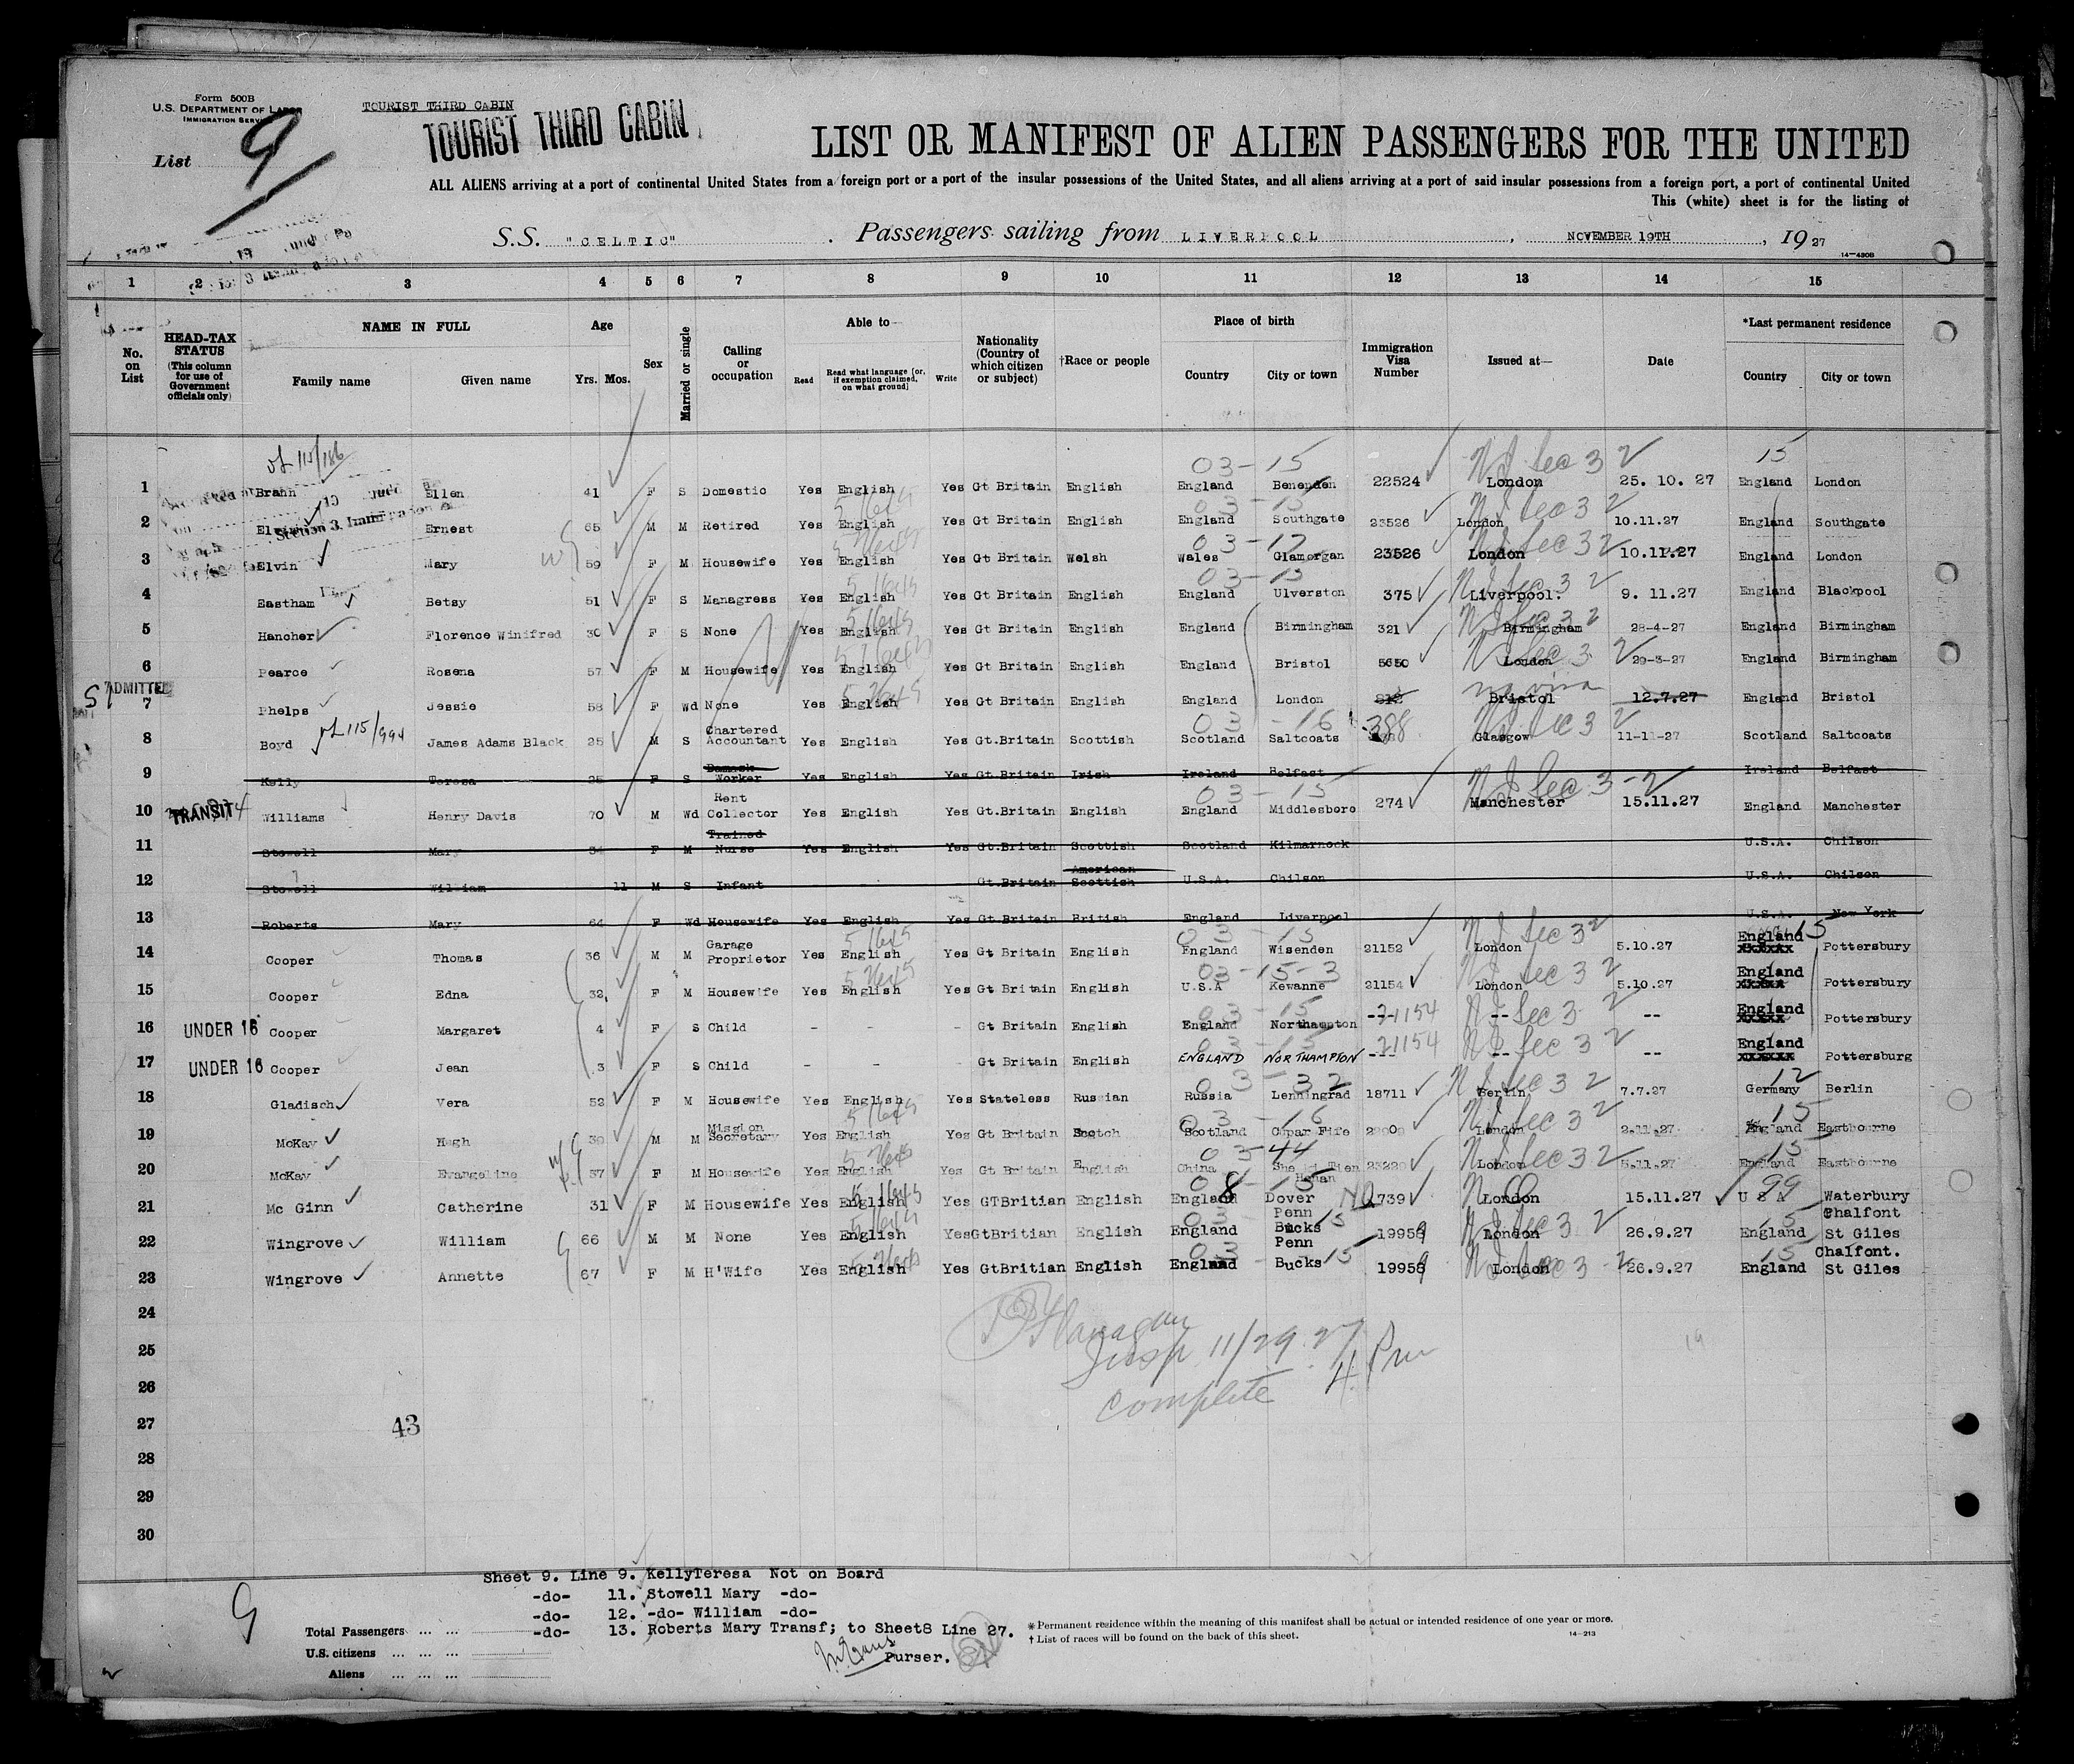 Form 500B
U.S. DEPARTMENT OF LABOR
IMMIGRATION SERVICE
TOURIST THIRD CABIN
TOURIST THIRD CABIN
List 9
LIST OR MANIFEST OF ALIEN PASSENGERS FOR THE UNITED
ALL ALIENS arriving at a port of continental United States from a foreign port or a port of the insular possessions of the United States, and all aliens arriving at a port of said insular possessions from a foreign port, a port of continental United
This (white) sheet is for the listing of
S.S. "CELTIC" . Passengers sailing from LIVERPOOL , NOVEMBER 19TH , 1927
14-430B
1 2 3 4 5 6 7 8 9 10 11 12 13 14 15
No. on List
HEAD-TAX STATUS (This column for use of Government officials only)
NAME IN FULL
Family name Given name
Age
Yrs. Mos.
Sex
Married or single
Calling or occupation
Able to—
Read Read what language (or, if exemption claimed, on what ground) Write
Nationality (Country of which citizen or subject)
†Race or people
Place of birth
Country City or town
Immigration Visa Number
Issued at—
Date
*Last permanent residence
Country City or town
03-15 NI Sec 3 2 15
1 Brann Ellen 41 F S Domestic Yes English Yes Gt Britain English England Benenden 22524 London 25. 10. 27 England London
2 Elvin Ernest 65 M M Retired Yes English Yes Gt Britain English England Southgate 23526 London 10.11.27 England Southgate
3 Elvin Mary 59 F M Housewife Yes English Yes Gt Britain Welsh Wales Glamorgan 23526 London 10.11.27 England London
4 Eastham Betsy 51 F S Manageress Yes English Yes Gt Britain English England Ulverston 375 Liverpool. 9. 11.27 England Blackpool
5 Hancher Florence Winifred 30 F S None Yes English Yes Gt Britain English England Birmingham 321 Birmingham 28-4-27 England Birmingham
6 Pearce Rosena 57 F M Housewife Yes English Yes Gt Britain English England Bristol 5650 London 29-3-27 England Birmingham
ADMITTED
7 Phelps Jessie 58 F Wd None Yes English Yes Gt Britain English England London no visa Bristol 12.7.27 England Bristol
8 Boyd James Adams Black 25 M S Chartered Accountant Yes English Yes Gt.Britain Scottish Scotland Saltcoats 388 Glasgow 11-11-27 Scotland Saltcoats
9 Kelly Teresa 25 F S Damask Worker Yes English Yes Gt.Britain Irish Ireland Belfast Ireland Belfast
10 TRANSIT Williams Henry Davis 70 M Wd Rent Collector Yes English Yes Gt.Britain English England Middlesboro 274 Manchester 15.11.27 England Manchester
11 Stowell Mary 34 F M Trained Nurse Yes English Yes Gt.Britain Scottish Scotland Kilmarnock U.S.A. Chilson
12 Stowell William 11 M S Infant - - Gt.Britain American Scottish U.S.A. Chilson U.S.A. Chilson
13 Roberts Mary 64 F Wd Housewife Yes English Yes Gt.Britain British England Liverpool U.S.A. New York
14 Cooper Thomas 36 M M Garage Proprietor Yes English Yes Gt Britain English England Wisenden 21152 London 5.10.27 England Pottersbury
15 Cooper Edna 32 F M Housewife Yes English Yes Gt Britain English U.S.A Kewanne 21154 London 5.10.27 England Pottersbury
16 UNDER 16 Cooper Margaret 4 F S Child - - - Gt Britain English England Northampton 21154 -- -- England Pottersbury
17 UNDER 16 Cooper Jean 3 F S Child - - Gt Britain English ENGLAND NORTHAMPTON 21154 -- -- England Pottersburg
18 Gladisch Vera 52 F M Housewife Yes English Yes Stateless Russian Russia Lenningrad 18711 Berlin 7.7.27 Germany Berlin
19 McKay Hugh M M Mission Secretary Yes English Yes Gt Britain Scotch Scotland Cupar Fife London 2.11.27 England Eastbourne
20 McKay Evangeline 37 F M Housewife Yes English Yes Gt Britain English China Honan 23220 London 5.11.27 England Eastbourne
21 Mc Ginn Catherine 31 F M Housewife Yes English Yes GTBritian English England Dover 739 London 15.11.27 U S A Waterbury
22 Wingrove William 66 M M None Yes English YesGtBritian English England Penn Bucks 19959 London 26.9.27 England Chalfont St Giles
23 Wingrove Annette 67 F M H'Wife Yes English Yes GtBritian English England Penn Bucks 19958 London 26.9.27 England Chalfont. St Giles
24
25
26
27
28
29
30
Flanagan
Insp 11/29.27
complete
43
Sheet 9. Line 9. KellyTeresa Not on Board
-do- 11. Stowell Mary -do-
-do- 12. -do- William -do-
-do- 13. Roberts Mary Transf; to Sheet8 Line 27.
Purser.
9
Total Passengers
U.S. citizens
Aliens
* Permanent residence within the meaning of this manifest shall be actual or intended residence of one year or more.
† List of races will be found on the back of this sheet.
14-213